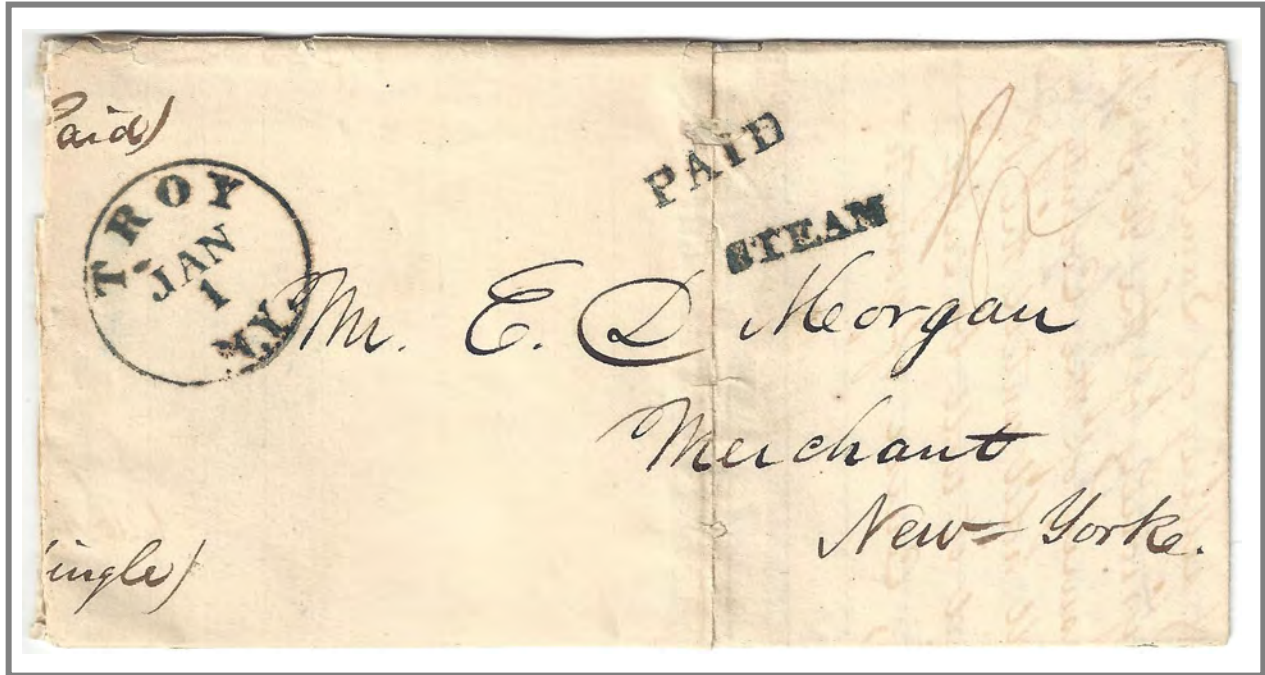 Paid)
TROY
JAN
1
N.Y.
PAID
STEAM
Mr. E. D Morgan
Merchant
New=Yorke.
ingle)